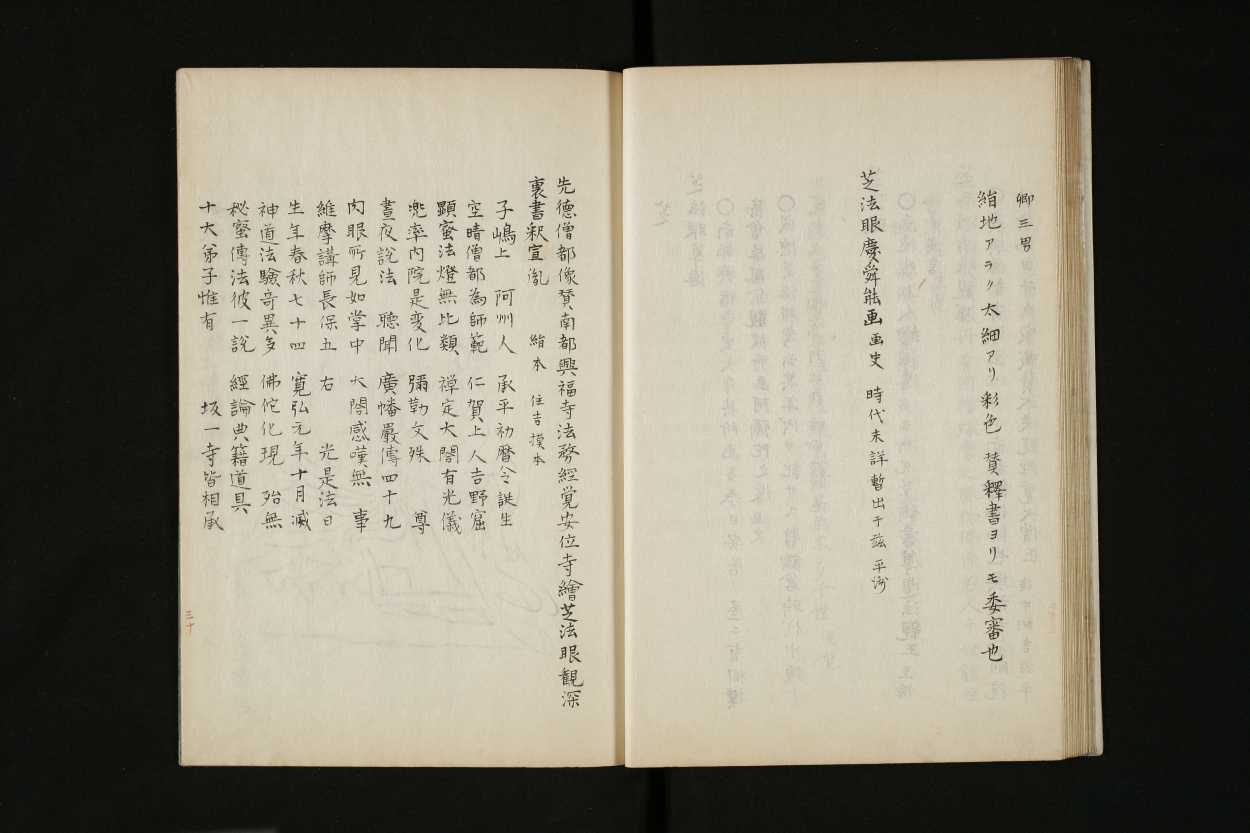 卿三男
絹地アラク太細アリ彩色賛釋書ヨリモ委審也
芝法眼慶舜 能画 画史 時代未詳暫出于茲 平洲
先徳僧都像賛南都興福寺法務經覚安位寺繪芝法眼観深
裏書釈宣胤 絹本 住吉摸本
子嶋上 阿州人 承平初暦今誕生
空晴僧都為師範 仁賀上人吉野窟
顕蜜法燈無比類 禅定大閤有光儀
兜率内院是変化 彌勒文殊 尊
晝夜説法 聴聞 廣幡嚴傳四十九
肉眼所見如掌中 大閤感嘆無 事
維摩講師長保五 右 光是法日
生年春秋七十四 寛弘元年十月滅
神道法驗竒異多 佛佗化現 殆無
秘蜜傳法彼一說 經論典籍道具
十大弟子惟有 坂一寺皆相承
三十